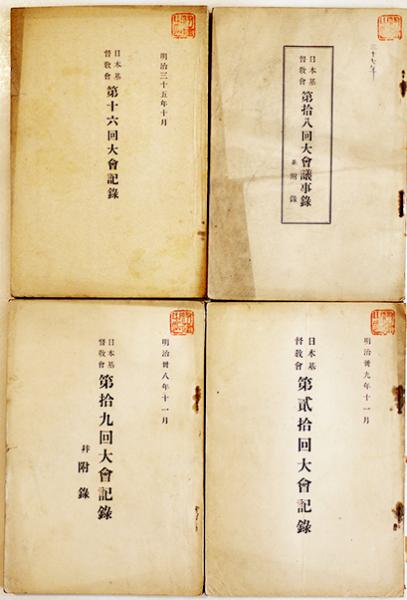 明治三十五年十月
日本基
督敎會
第十六回大會記錄
三十七年
日本基
督敎會
第拾八回大會議事錄
附錄
明治卅八年十一月
日本基
督敎會
第拾九回大會記錄
幷附錄
明治卅九年十一月
日本基
督敎會
第貳拾回大會記錄